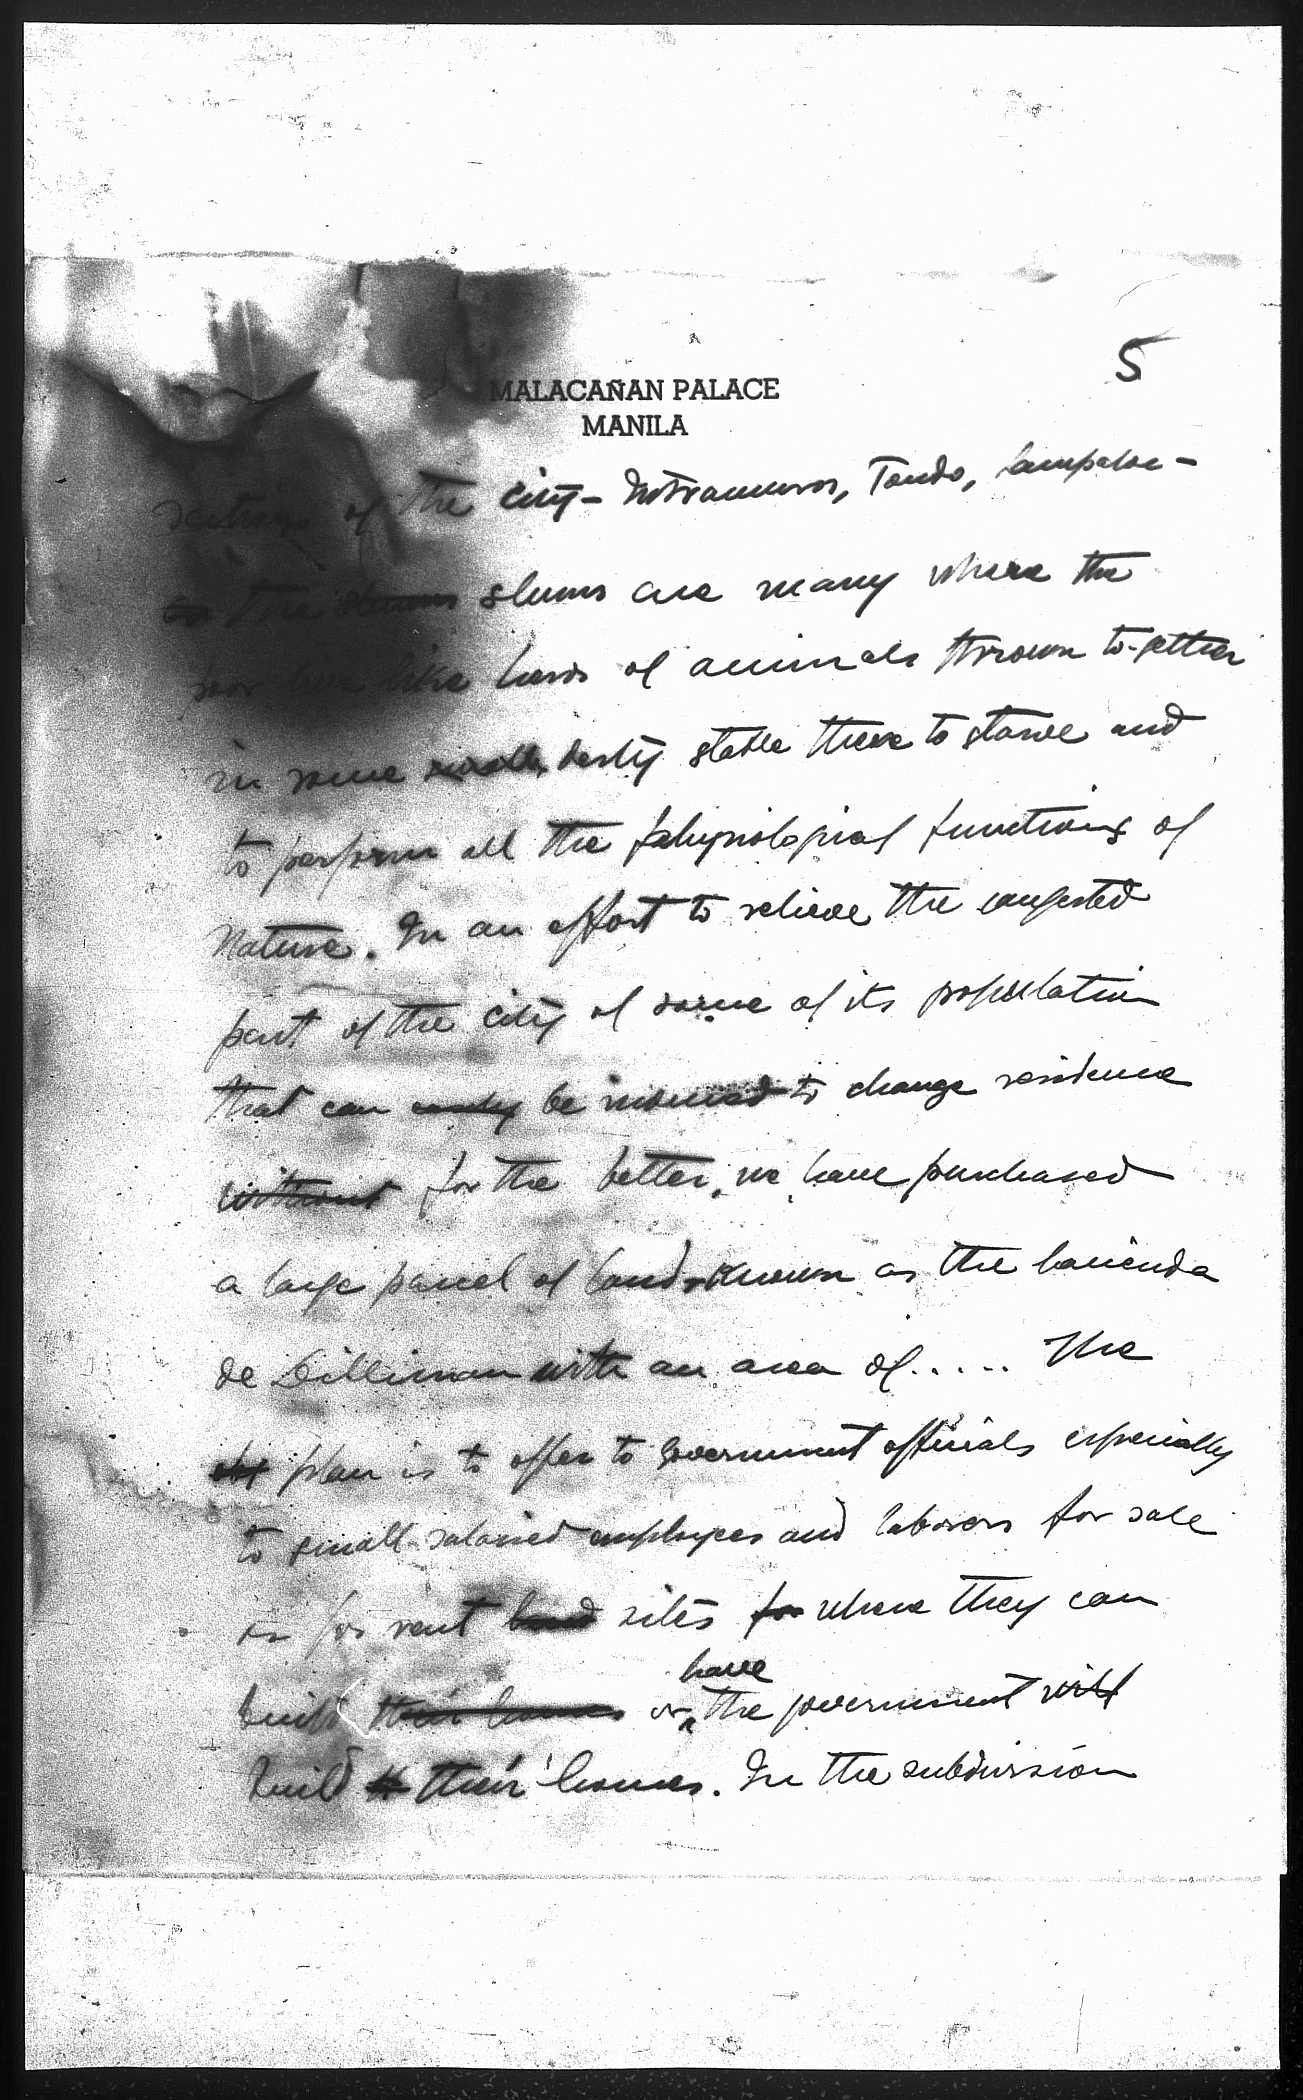 5
MALACAÑAN PALACE
MANILA
sections of the city - Intramuros, Tondo, Sampaloc -
the slums are many where the
poor live like herds of animals thrown together
in some dirty stable there to starve and
to perform all the physiological functions of
Nature. In an effort to relieve the congested
part of the city of some of its population
that can be induced to change residence
without for the better, we have purchased
a large parcel of land known as the hacienda
de Dilliman with an area of..... The
plan is to offer to Government officials especially
to small salaried employees and laborers for sale
or for rent land sites for where they can
have
build their homes or the government will
build their homes. In the subdivision